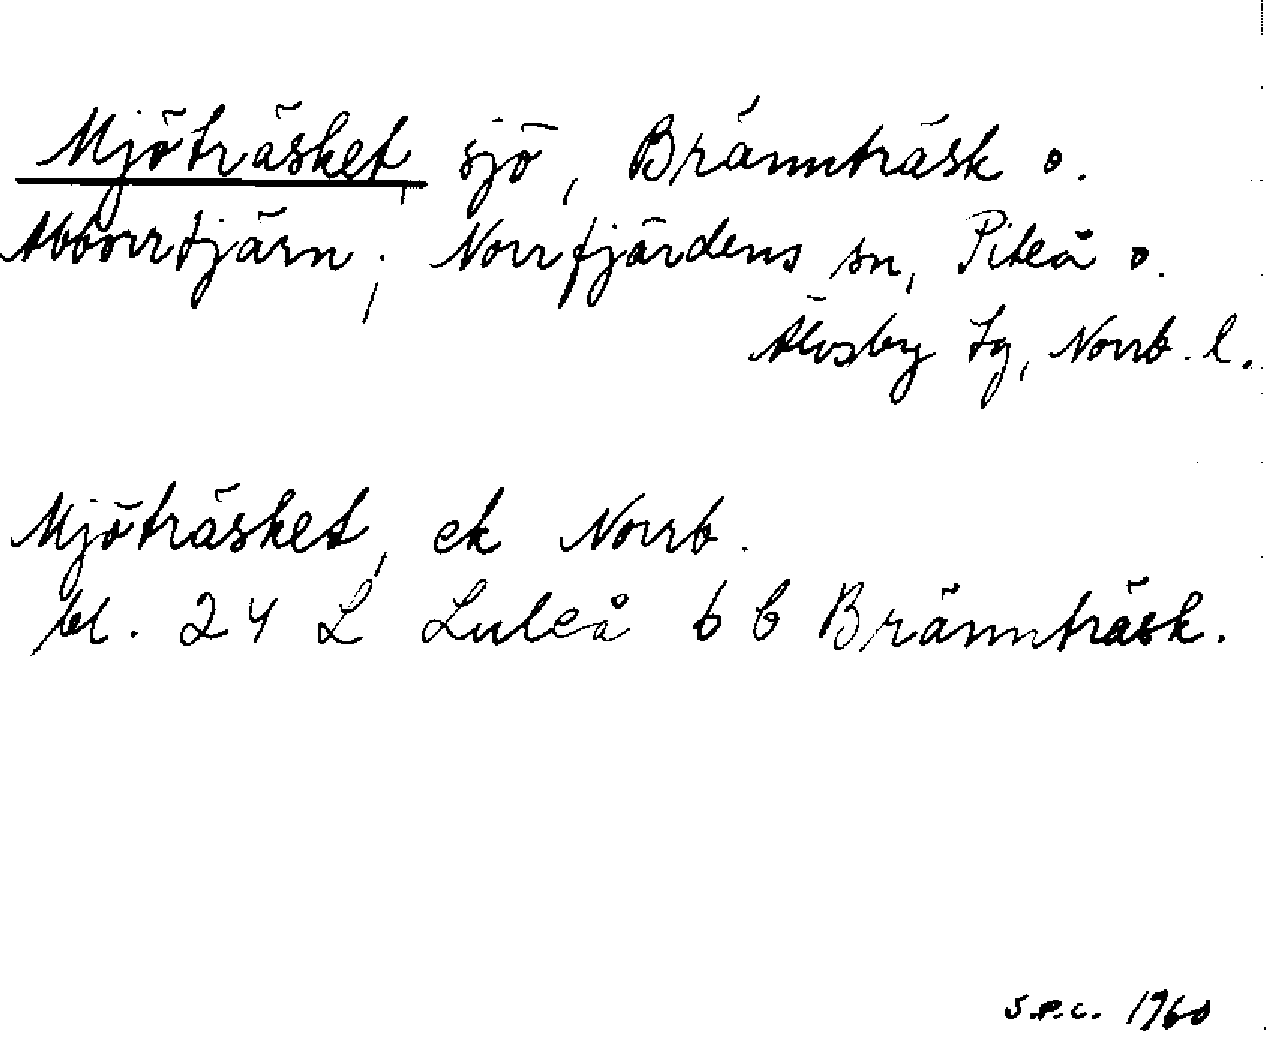 Mjöträsket, sjö, Brännträsk o.
Abborrtjärn; Norrfjärdens sn, Piteå o.
Älvsby tg, Norrb. l.
Mjöträsket, ek Norrb.
bl. 24 L Luleå 6 b Brännträsk.
S.P.C. 1960